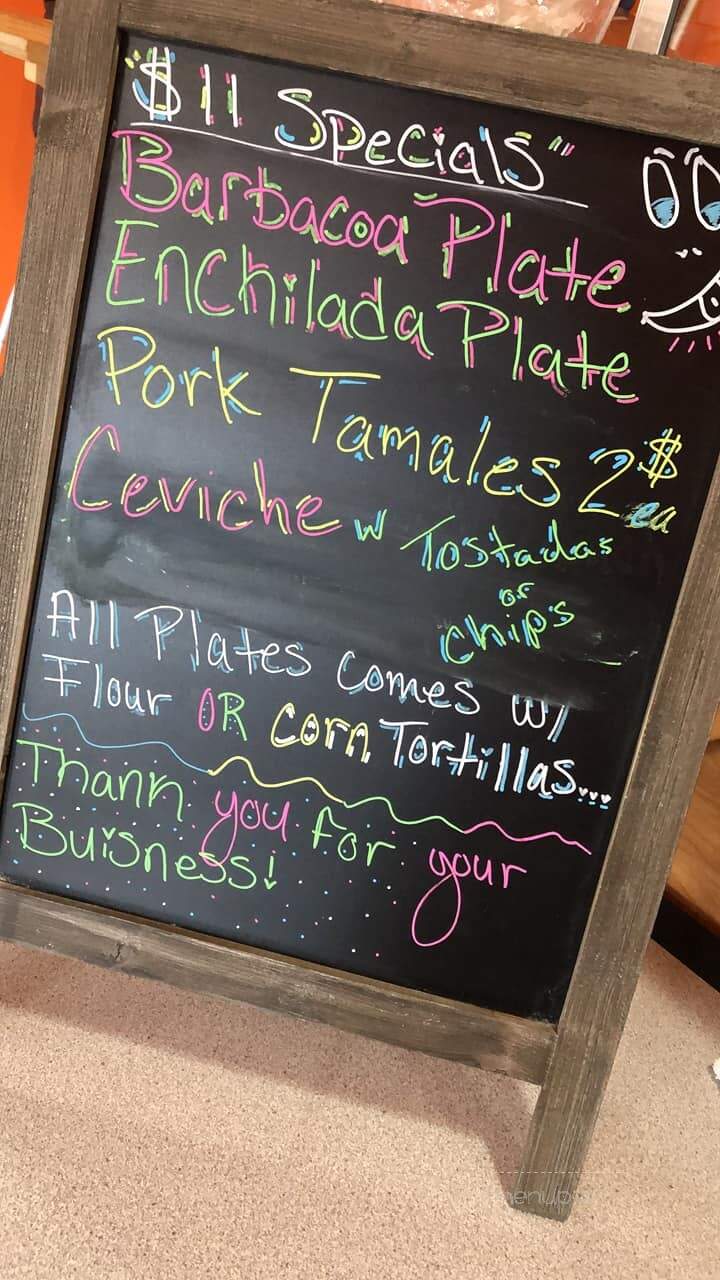 $11 Specials"
Barbacoa Plate
Enchilada Plate
Pork Tamales 2$ ea
Ceviche w Tostadas
or
Chips
All Plates comes w/
Flour OR corn Tortillas...
Thank you for your
Buisness!